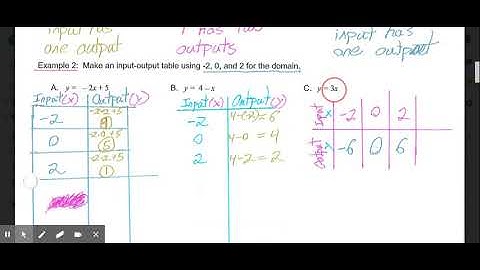 input has
one output
1 has two
outputs
input has
one output
Example 2: Make an input-output table using -2, 0, and 2 for the domain.
A. y = -2x + 5
Input(x) Output(y)
-2 -2·-2+5 9
0 -2·0+5 5
2 -2·2+5 1
B. y = 4 - x
Input(x) Output(y)
-2 4-(-2)=6
0 4-0=4
2 4-2=2
C. y = 3x
Input x -2 0 2
Output -6 0 6